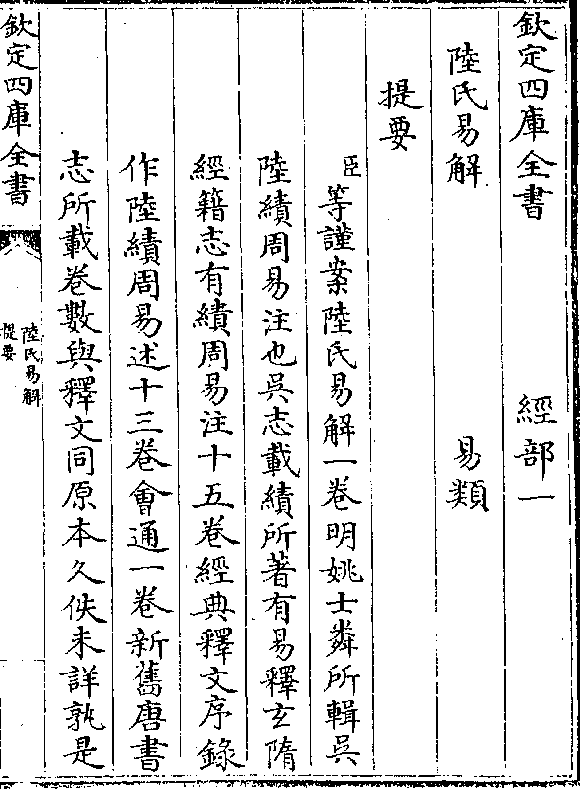 欽定四庫全書　經部一
陸氏易解　易類
提要
臣等謹案陸氏易解一卷明姚士粦所輯吳
陸績周易注也吳志載績所著有易釋玄隋
經籍志有績周易注十五卷經典釋文序錄
作陸績周易述十三卷會通一卷新舊唐書
志所載卷數與釋文同原本久佚未詳孰是
欽定四庫全書
陸氏易解
提要